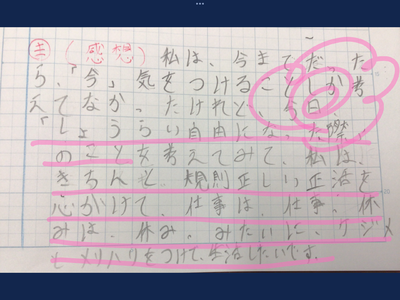 ㊎(感想) 私は、今まてだった
ら、「今」気をつけることしか考
えてなかったけれど、今日
「しょうらい自由になった際」
のことを考えてみて、私は、
きちんと規則正しい生活を
心がけて、仕事は、仕事、休
みは、休み、みたいに、ケジメ
とメリハリをつけて、生活したいです。